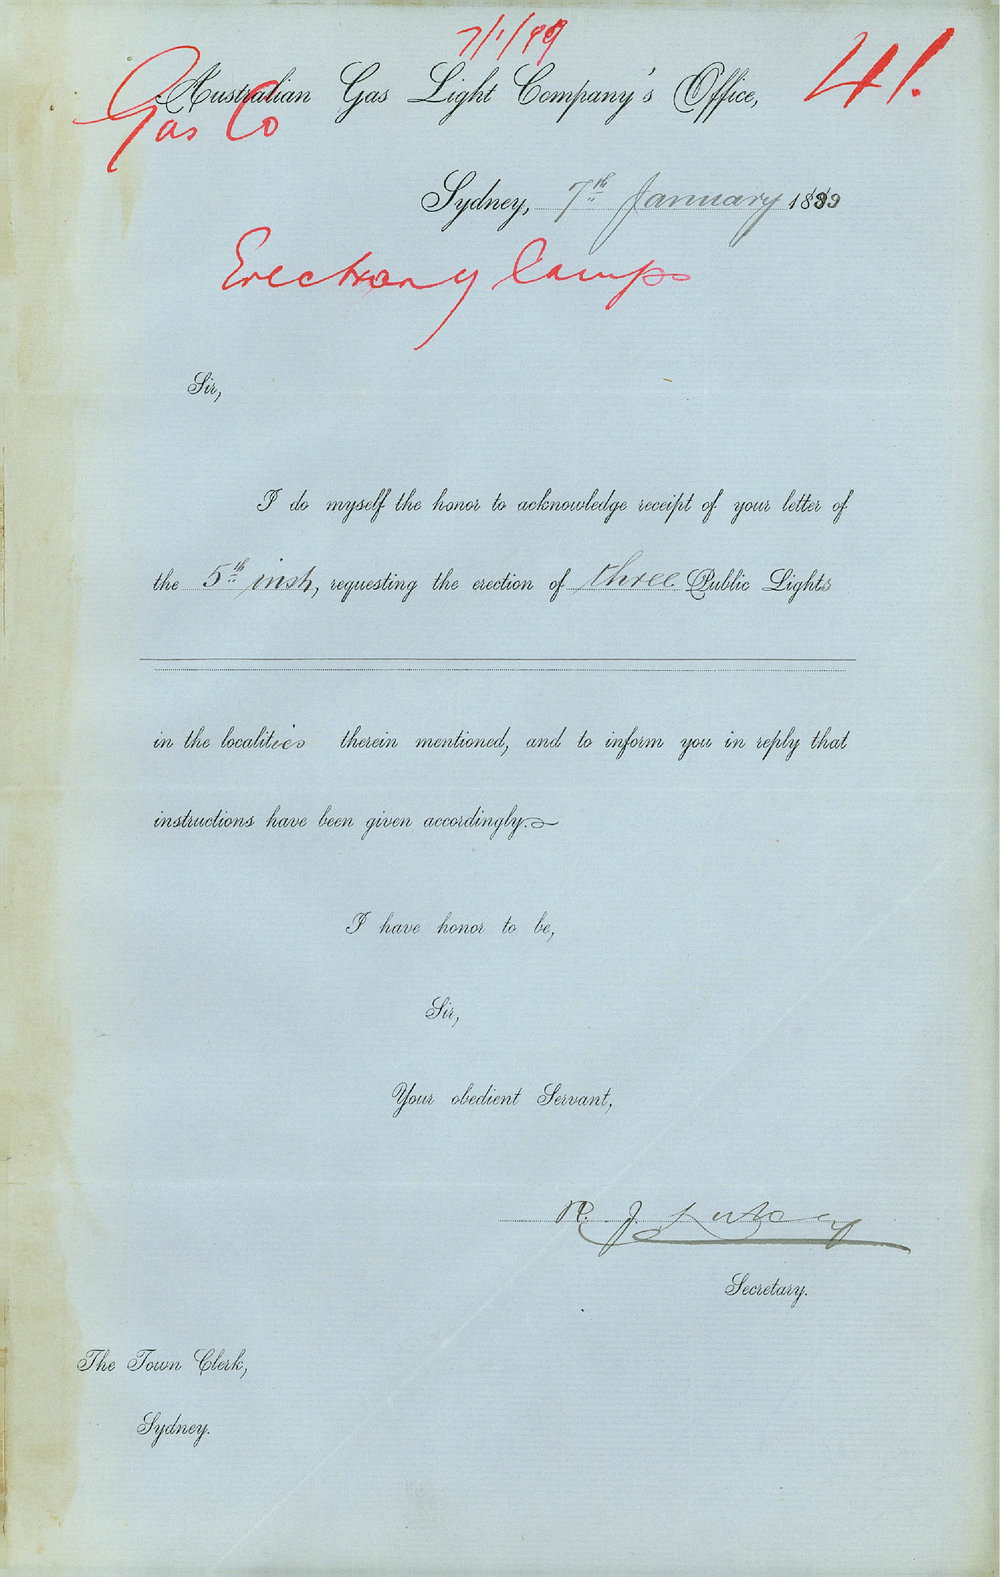 7/1/89
41.
Australian Gas Light Company's Office,
Gas Co
Sydney, 7th January 1889
Erecting lamps
Sir,
I do myself the honor to acknowledge receipt of your letter of
the 5th inst, requesting the erection of three Public Lights
in the localities therein mentioned, and to inform you in reply that
instructions have been given accordingly.
I have honor to be,
Sir,
Your obedient Servant,
R. J.
Secretary.
The Town Clerk,
Sydney.